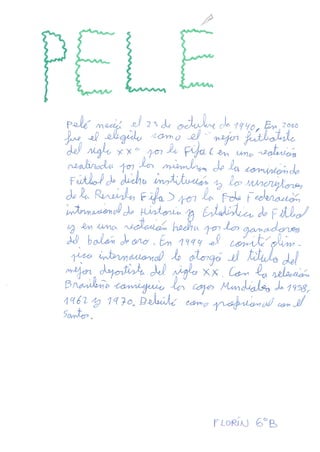 PELÉ
Pelé nació el 23 de octubre de 1940, En 2000
fue el elegido como el "mejor futbolista
del siglo XX" por la Fifa ( en una votación
realizada por los miembros de la comisión de
Fútbol de dicha institución y los suscriptores
de la Revista Fifa ) por la Federación
internacional de Historia y Estadística de Fútbol
y en una votación hecha por los ganadores
del balón de oro. En 1999 el comité olím-
pico internacional le otorgó el título del
mejor deportista del siglo XX. Con la selección
Brasileña consiguió las copas Mundiales de 1958,
1962 y 1970. Debutó como profesional con el
Santos.
FLORIN 6ºB